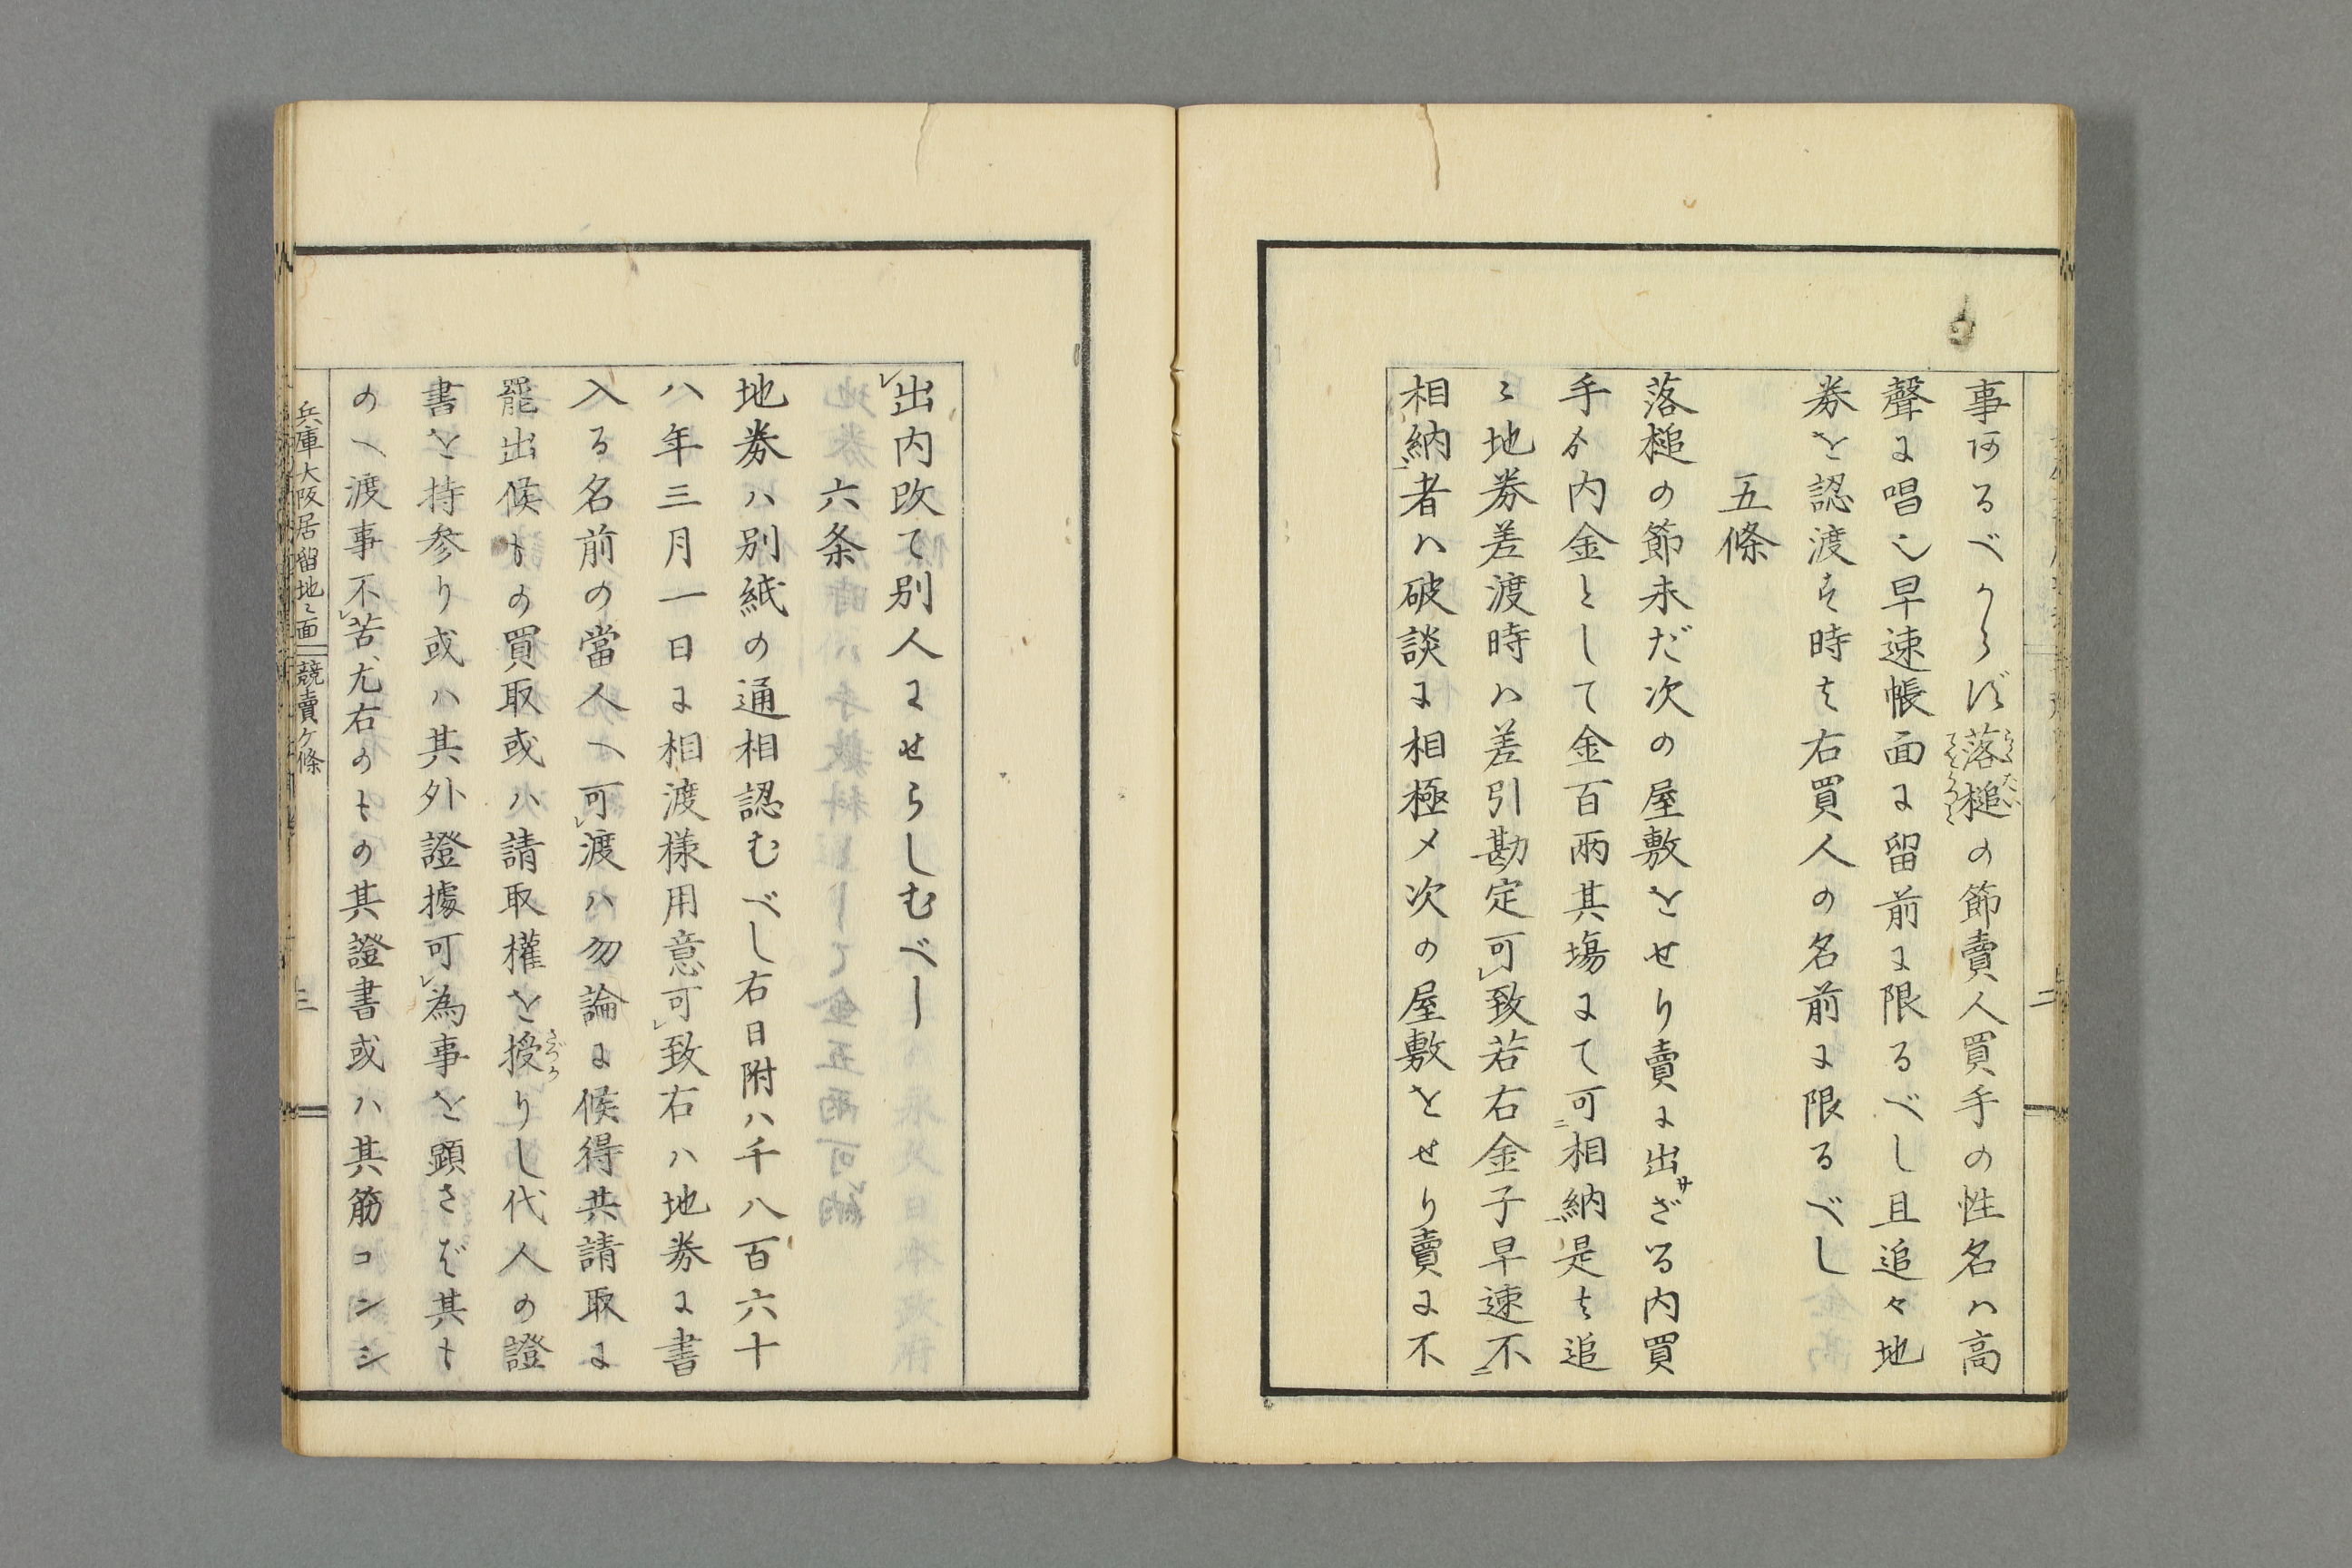 事阿るべからず落槌の節賣人買手の性名ハ高
聲に唱へ早速帳面に留前に限るべし且追々地
券を認渡す時も右買人の名前に限るべし
五條
落槌の節未だ次の屋敷をせり賣に出サざる内買
手ゟ内金として金百兩其塲にて可相納是も追
々地券差渡時ハ差引勘定可致若右金子早速不
相納者ハ破談に相極メ次の屋敷をせり賣に不
出内改て別人にせらしむべし
六条
地券ハ別紙の通相認むべし右日附ハ千八百六十
八年三月一日に相渡様用意可致右ハ地券に書
入る名前の當人へ可渡ハ勿論に候得共請取に
罷出候ものゝ買取或ハ請取權を授りし代人の證
書を持参り或ハ其外證據可為事を顕さば其も
のへ渡事不苦尤右のもの其證書或ハ其筋コンシ
兵庫大阪居留地々面 競賣ケ條
三
二